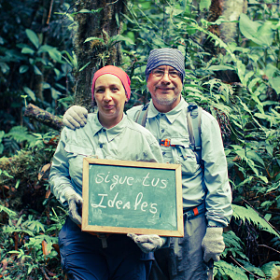 Sigue tus
Ideales